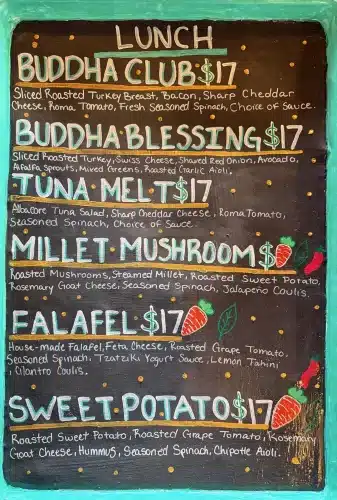 LUNCH
BUDDHA CLUB $17
Sliced Roasted Turkey Breast, Bacon, Sharp Cheddar
Cheese, Roma Tomato, Fresh Seasoned Spinach, Choice of Sauce.
BUDDHA BLESSING $17
Sliced Roasted Turkey, Swiss Cheese, Shaved Red Onion, Avocado,
Alfalfa Sprouts, Mixed Greens, Roasted Garlic Aioli.
TUNA MELT $17
Albacore Tuna Salad, Sharp Cheddar Cheese, Roma Tomato,
Seasoned Spinach, Choice of Sauce.
MILLET MUSHROOM $
Roasted Mushrooms, Steamed Millet, Roasted Sweet Potato,
Rosemary Goat Cheese, Seasoned Spinach, Jalapeño Coulis.
FALAFEL $17
House-made Falafel, Feta Cheese, Roasted Grape Tomato,
Seasoned Spinach, Tzatziki Yogurt Sauce, Lemon Tahini
, Cilantro Coulis.
SWEET POTATO $17
Roasted Sweet Potato, Roasted Grape Tomato, Rosemary
Goat Cheese, Hummus, Seasoned Spinach, Chipotle Aioli.